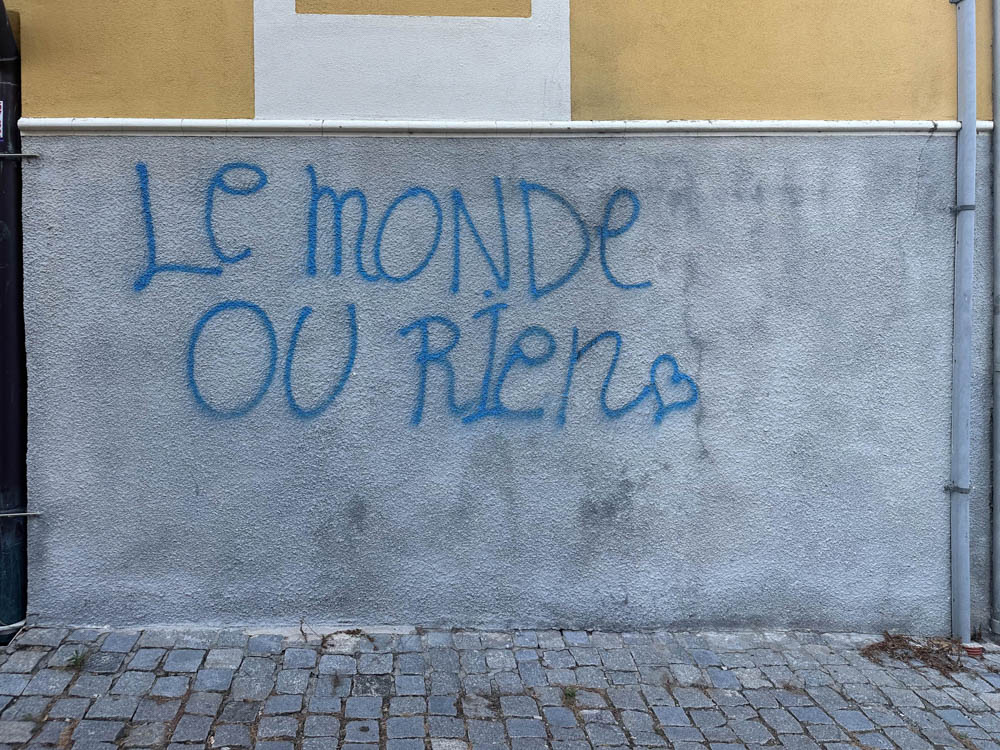 Le monde
ou rien